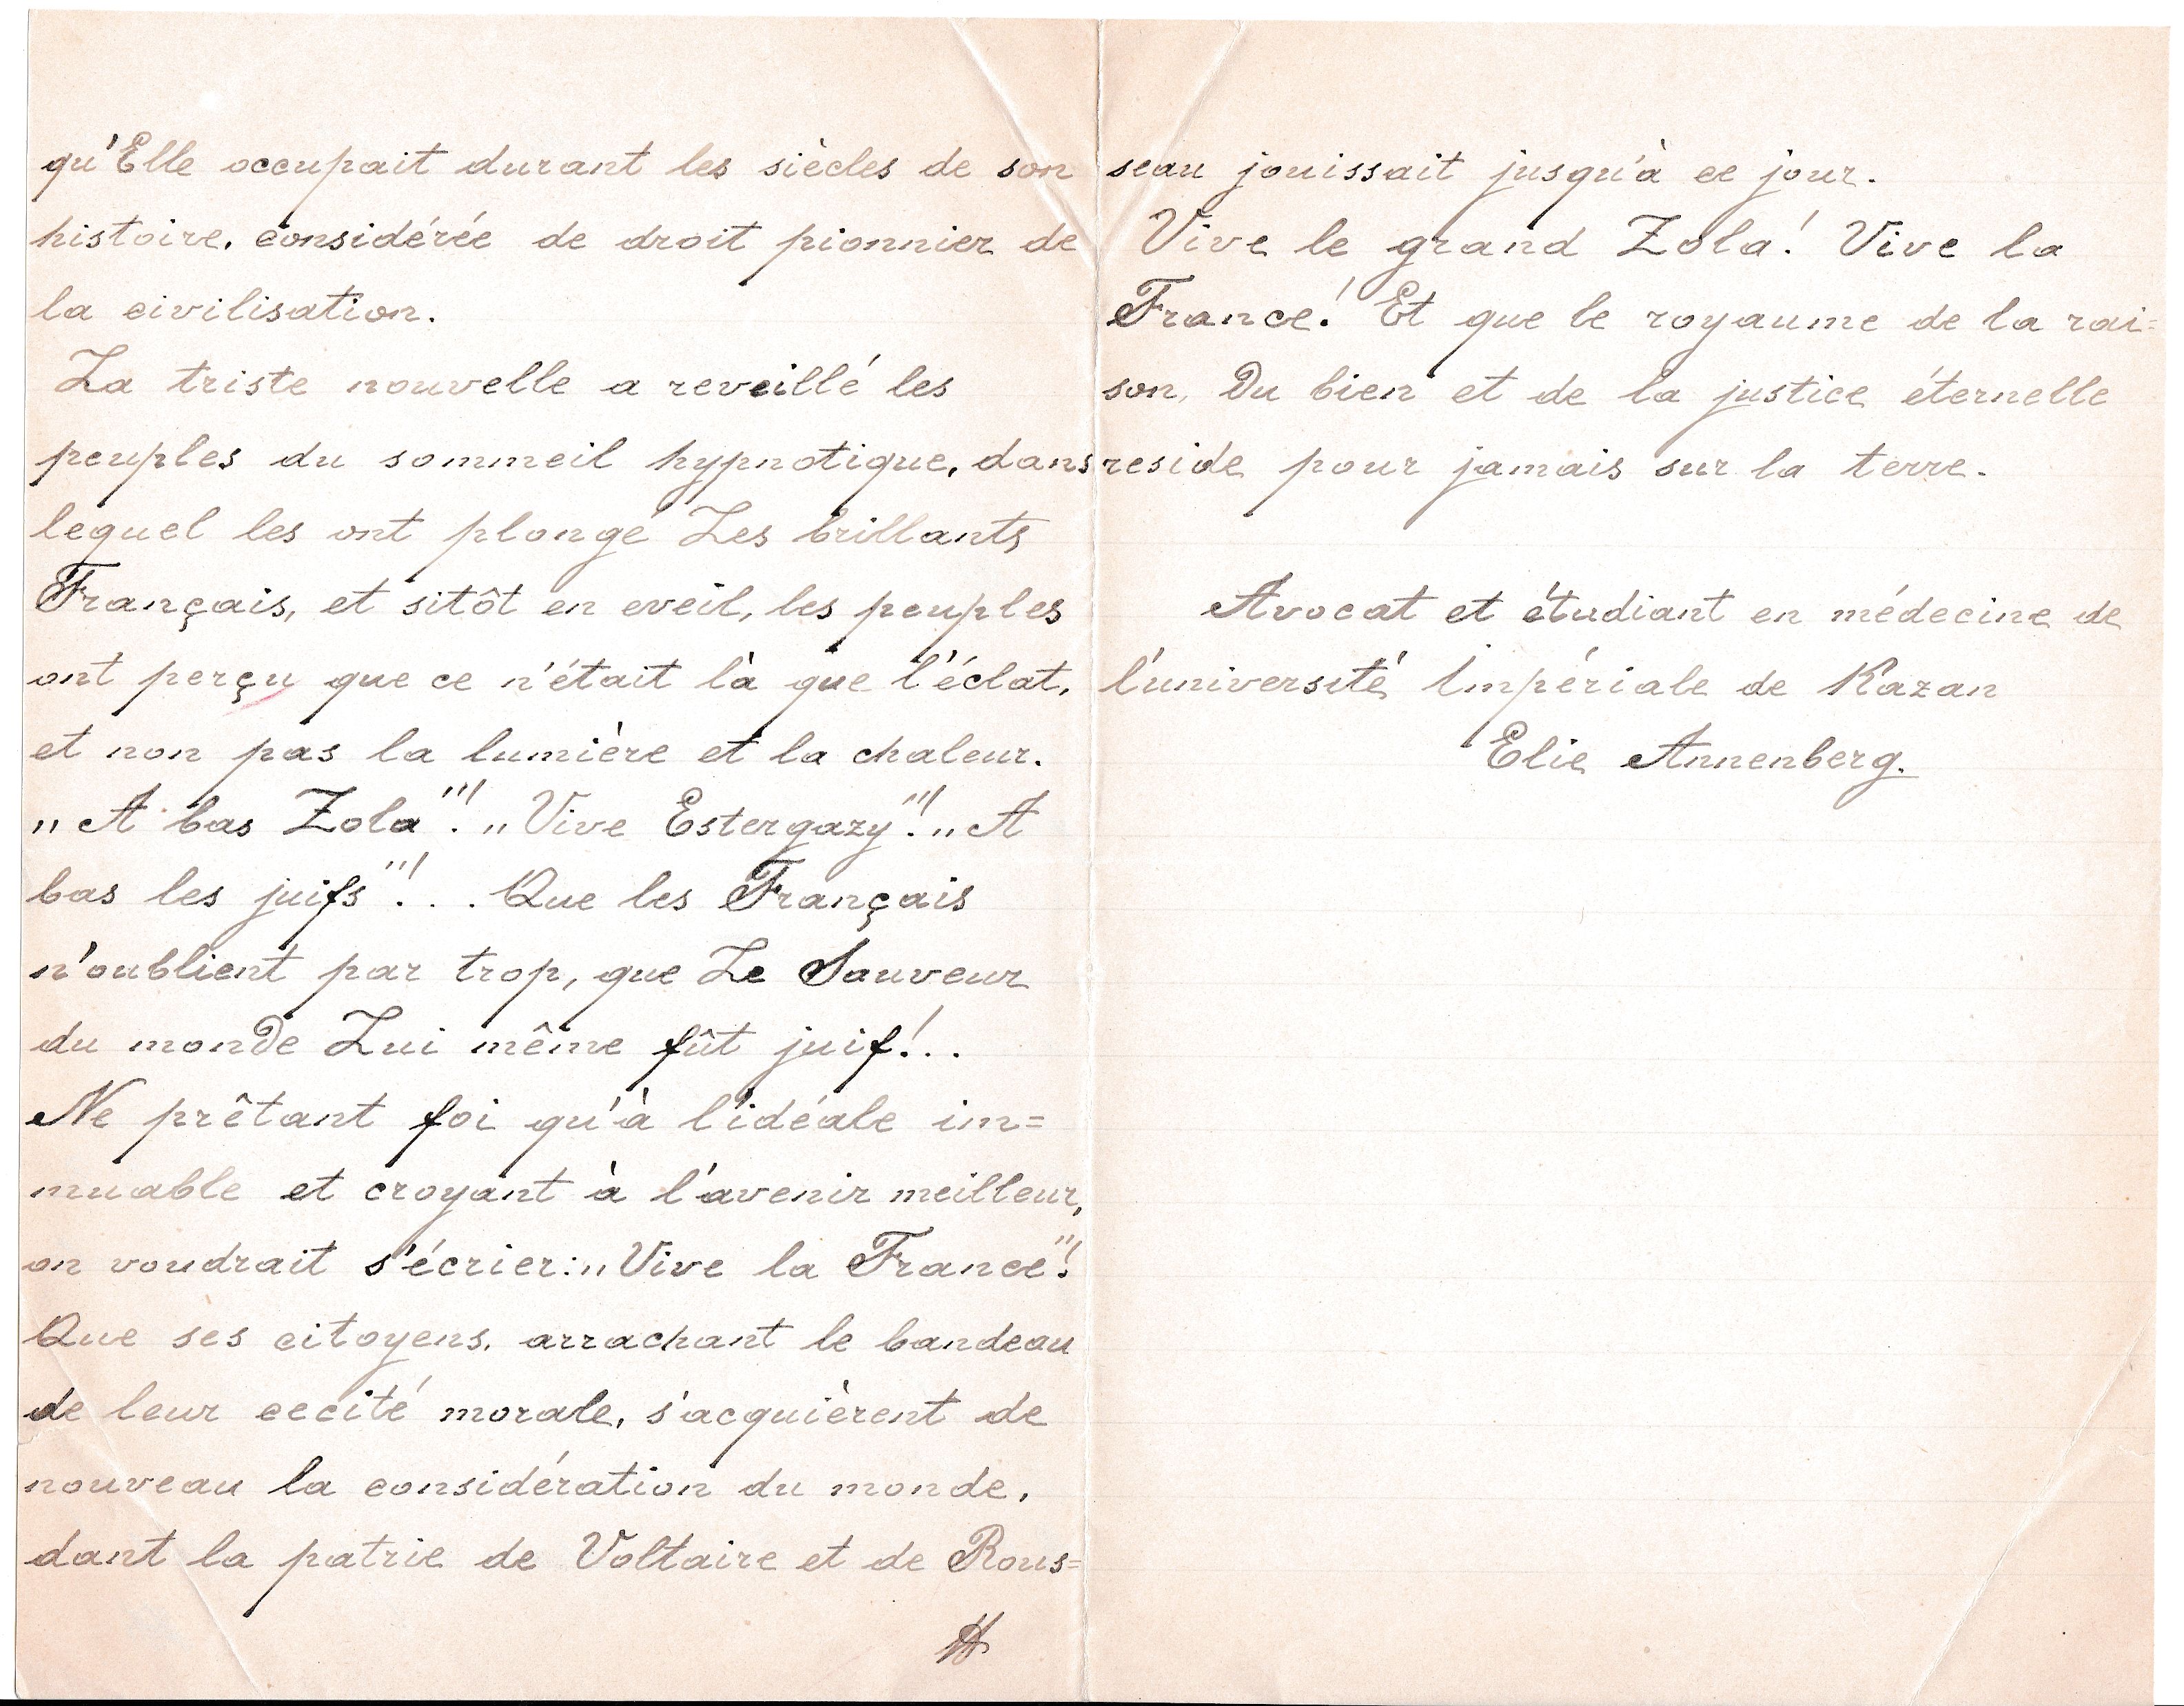 qu'Elle occupait durant les siècles de son
histoire, considérée de droit pionnier de
la civilisation.
La triste nouvelle a reveillé les
peuples du sommeil hypnotique, dans
lequel les ont plongé Les brillants
Français, et sitôt en eveil, les peuples
ont perçu que ce n'était là que l'éclat,
et non pas la lumière et la chaleur.
„A bas Zola"! „Vive Estergazy"! „A
bas les juifs"!... Que les Français
n'oublient par trop, que Le Sauveur
du monde Lui même fût juif!..
Ne prêtant foi qu'à l'idéale im=
muable et croyant à l'avenir meilleur,
on voudrait s'écrier: „Vive la France"!
Que ses citoyens, arrachant le bandeau
de leur cecité morale, s'acquièrent de
nouveau la considération du monde,
dant la patrie de Voltaire et de Rous=
seau jouissait jusqu'à ce jour.
Vive le grand Zola! Vive la
France! Et que le royaume de la rai=
son, Du bien et de la justice éternelle
reside pour jamais sur la terre.
Avocat et étudiant en médecine de
l'université Impériale de Kazan
Elie Annenberg.